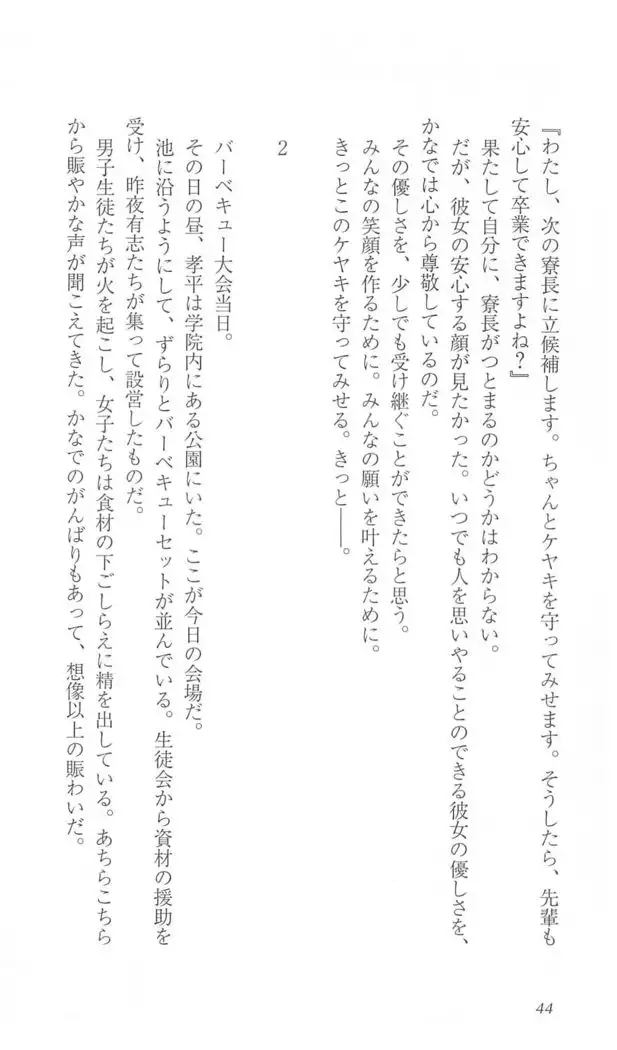 『わたし、次の寮長に立候補します。ちゃんとケヤキを守ってみせます。そうしたら、先輩も
安心して卒業できますよね?』
果たして自分に、寮長がつとまるのかどうかはわからない。
だが、彼女の安心する顔が見たかった。いつでも人を思いやることのできる彼女の優しさを、
かなでは心から尊敬しているのだ。
その優しさを、少しでも受け継ぐことができたらと思う。
みんなの笑顔を作るために。みんなの願いを叶えるために。
きっとこのケヤキを守ってみせる。きっと――。
2
バーベキュー大会当日。
その日の昼、孝平は学院内にある公園にいた。ここが今日の会場だ。
池に沿うようにして、ずらりとバーベキューセットが並んでいる。生徒会から資材の援助を
受け、昨夜有志たちが集って設営したものだ。
男子生徒たちが火を起こし、女子たちは食材の下ごしらえに精を出している。あちらこちら
から賑やかな声が聞こえてきた。かなでのがんばりもあって、想像以上の賑わいだ。
44